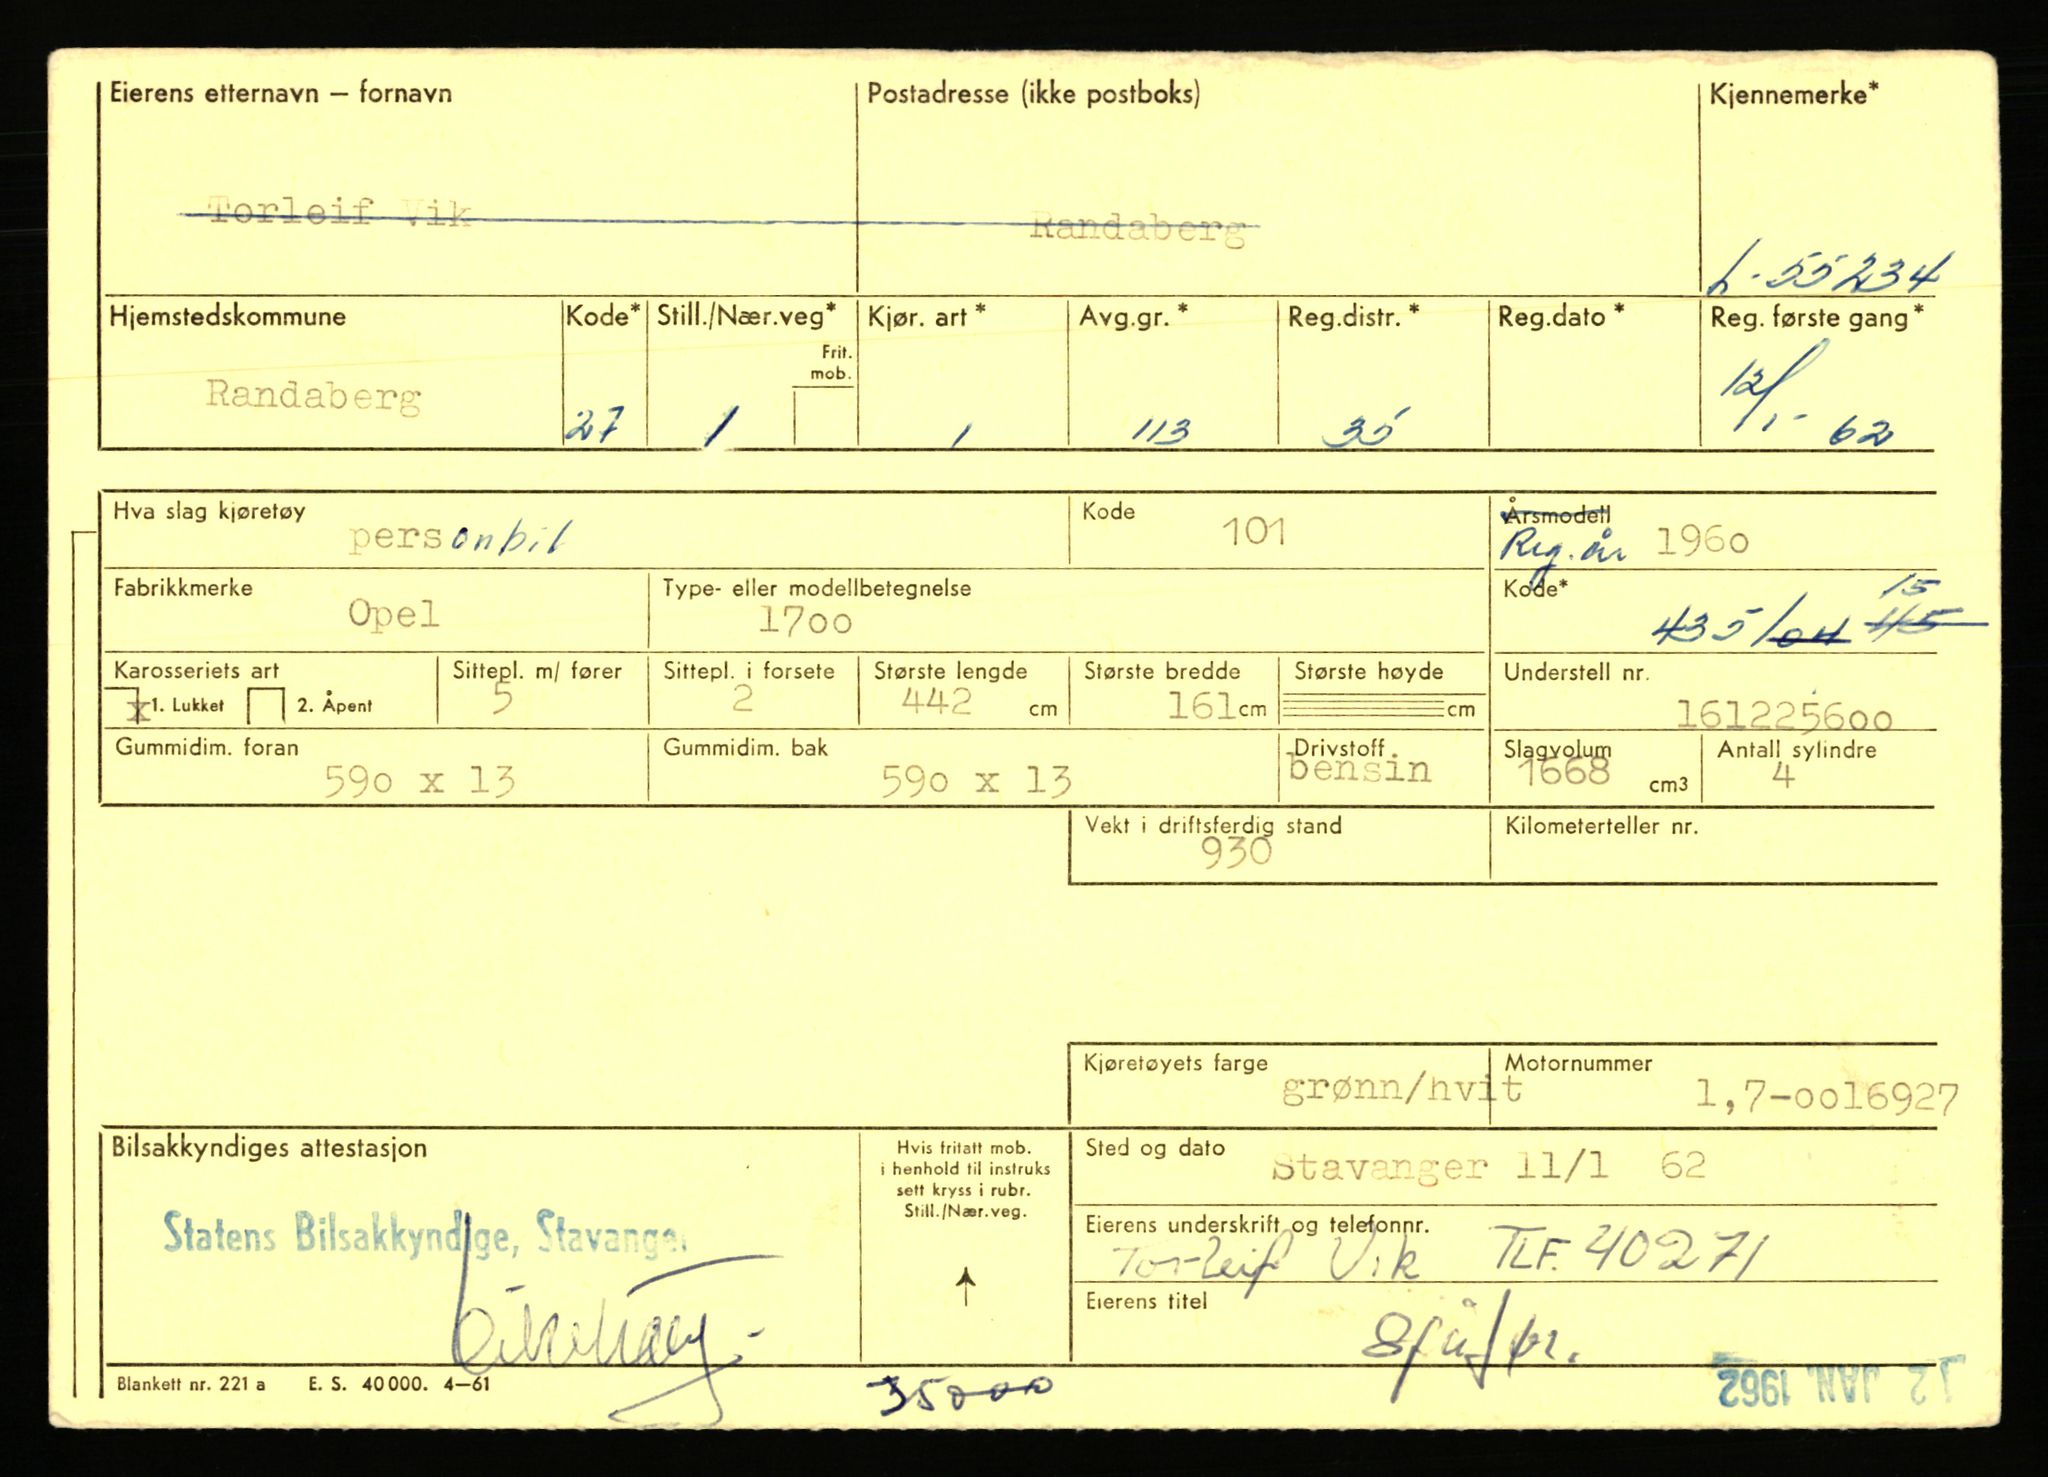 Eierens etternavn – fornavn
Postadresse (ikke postboks)
Kjennemerke*
Torleif Vik
Randaberg
L-55234
Hjemstedskommune
Kode*
Still./Nær.veg*
Kjør. art*
Avg.gr.*
Reg.distr.*
Reg.dato*
Reg. første gang*
Frit.
mob.
Randaberg
27
1
1
113
35
12/1- 62
Hva slag kjøretøy
personbil
Kode
101
Årsmodell
Reg. år 1960
Fabrikkmerke
Opel
Type- eller modellbetegnelse
1700
Kode*
15
435/04 45
Karosseriets art
x 1. Lukket
2. Åpent
Sittepl. m/ fører
5
Sittepl. i forsete
2
Største lengde
442 cm
Største bredde
161 cm
Største høyde
cm
Understell nr.
161225600
Gummidim. foran
590 x 13
Gummidim. bak
590 x 13
Drivstoff
bensin
Slagvolum
1668 cm3
Antall sylindre
4
Vekt i driftsferdig stand
930
Kilometerteller nr.
Kjøretøyets farge
grønn/hvit
Motornummer
1,7-0016927
Bilsakkyndiges attestasjon
Statens Bilsakkyndige, Stavanger
Hvis fritatt mob.
i henhold til instruks
sett kryss i rubr.
Still./Nær.veg.
Sted og dato
Stavanger 11/1 62
Eierens underskrift og telefonnr.
Torleif Vik TLF. 40271
Eierens titel
Blankett nr. 221 a E. S. 40 000. 4–61
35000
12 JAN. 1962